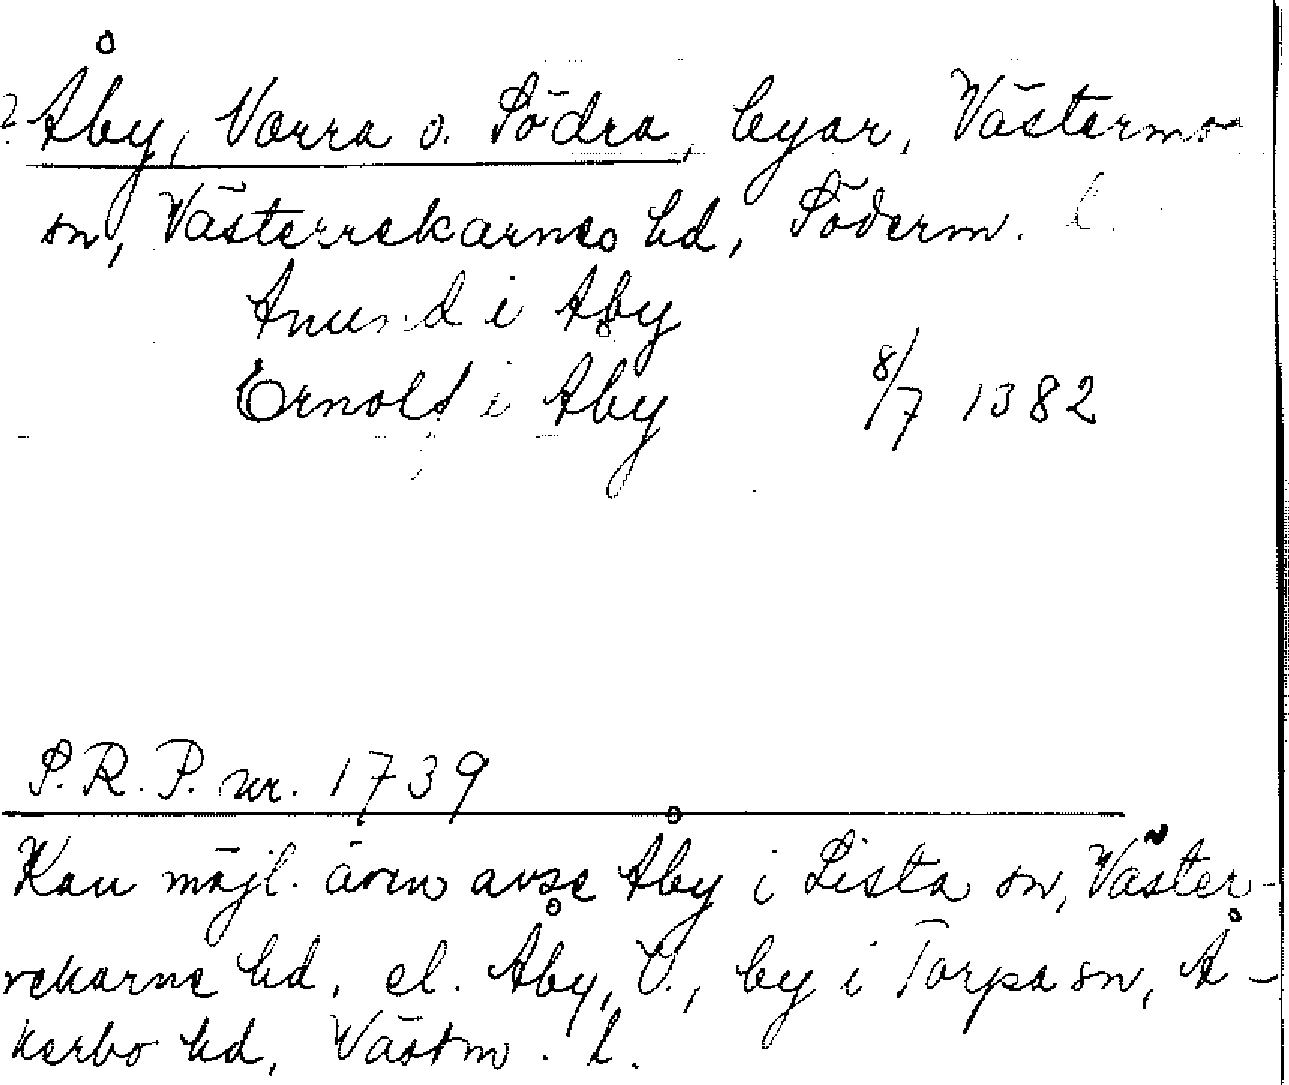 ? Åby, Norra o. Södra, byar, Västermo
sn, Västerrekarnes hd, Söderm. l.
Anund i Aby
Ernold i Aby 8/7 1382
S.R.P. nr. 1739
Kan möjl. även avse Åby i Lista sn, Väster-
rekarne hd, el. Åby, V., by i Torpa sn, Å-
kerbo hd, Västm. l.